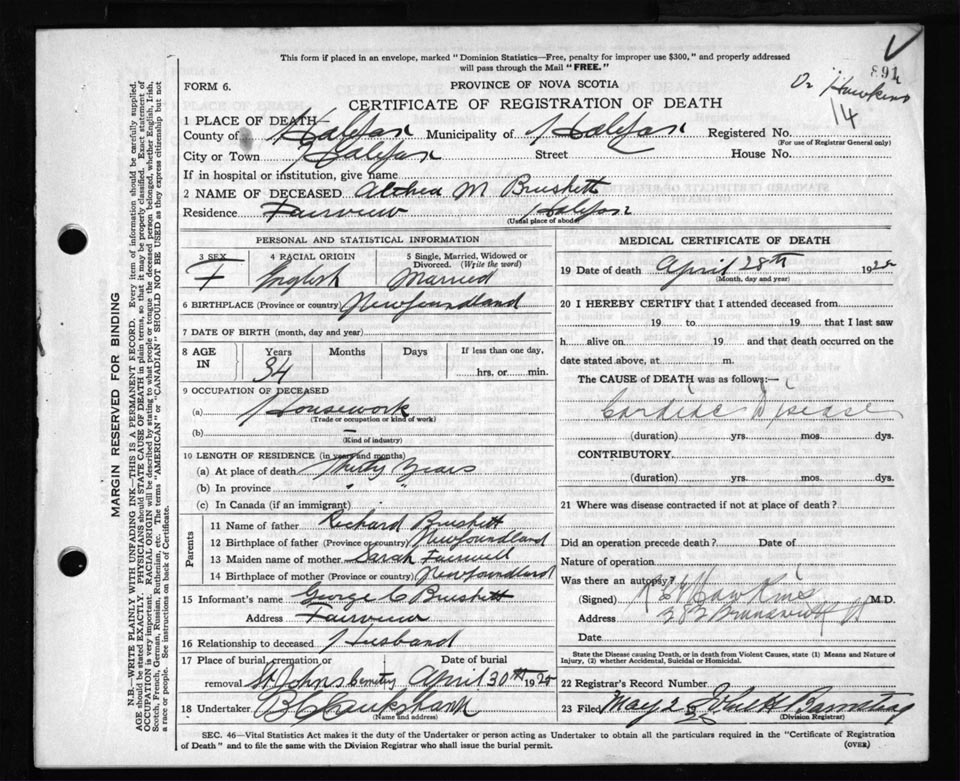 This form if placed in an envelope, marked "Dominion Statistics—Free, penalty for improper use $300," and properly addressed
will pass through the Mail "FREE."
891
Dr Hawkins
14
FORM 6.
PROVINCE OF NOVA SCOTIA
CERTIFICATE OF REGISTRATION OF DEATH
1 PLACE OF DEATH
County of Halifax Municipality of Halifax Registered No.
(For use of Registrar General only)
City or Town Halifax Street House No.
If in hospital or institution, give name
2 NAME OF DECEASED Althea M Brushett
Residence Fairview Halifax
(Usual place of abode)
PERSONAL AND STATISTICAL INFORMATION
3 SEX 4 RACIAL ORIGIN 5 Single, Married, Widowed or Divorced. (Write the word)
F English Married
6 BIRTHPLACE (Province or country) Newfoundland
7 DATE OF BIRTH (month, day and year)
8 AGE IN Years Months Days If less than one day,
34 hrs, or min.
9 OCCUPATION OF DECEASED
(a) Housework
(Trade or occupation or kind of work)
(b) —
(Kind of industry)
10 LENGTH OF RESIDENCE (in years and months)
(a) At place of death Thirty Years
(b) In province " "
(c) In Canada (if an immigrant)
Parents
11 Name of father Richard Brushett
12 Birthplace of father (Province or country) Newfoundland
13 Maiden name of mother Sarah
14 Birthplace of mother (Province or country) Newfoundland
15 Informant's name George C Brushett
Address Fairview
16 Relationship to deceased Husband
17 Place of burial, cremation or Date of burial
removal St Johns Cemetery April 30th 192
18 Undertaker
(Name and address)
MEDICAL CERTIFICATE OF DEATH
19 Date of death April 28th 192
(Month, day and year)
20 I HEREBY CERTIFY that I attended deceased from
19 to 19 that I last saw
h alive on 19 and that death occurred on the
date stated above, at m.
The CAUSE of DEATH was as follows:—
Cardiac Disease
(duration) yrs. mos. dys.
CONTRIBUTORY
(duration) yrs. mos. dys.
21 Where was disease contracted if not at place of death?
Did an operation precede death? Date of
Nature of operation
Was there an autopsy?
(Signed) Hawkins M.D.
Address 282 Brunswick St
Date
State the Disease causing Death, or in death from Violent Causes, state (1) Means and Nature of
Injury, (2) whether Accidental, Suicidal or Homicidal.
22 Registrar's Record Number
23 Filed May 2
(Division Registrar)
SEC. 46—Vital Statistics Act makes it the duty of the Undertaker or person acting as Undertaker to obtain all the particulars required in the "Certificate of Registration
of Death" and to file the same with the Division Registrar who shall issue the burial permit.
(OVER)
MARGIN RESERVED FOR BINDING
N.B.—WRITE PLAINLY WITH UNFADING INK—THIS IS A PERMANENT RECORD. Every item of information should be carefully supplied.
AGE should be stated EXACTLY. PHYSICIANS should STATE CAUSE OF DEATH in plain terms, so that it may be properly classified. Exact statement of
OCCUPATION is very important. RACIAL ORIGIN will be described by stating to what people or tongue the deceased person belonged, whether English, Irish,
Scotch, French, German, Russian, Ruthenian, etc. The terms "AMERICAN" or "CANADIAN" SHOULD NOT BE USED as they express citizenship but not
a race or people. See instructions on back of Certificate.